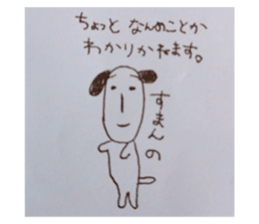 ちょっと なんのことか
わかりかねます。
すまんの